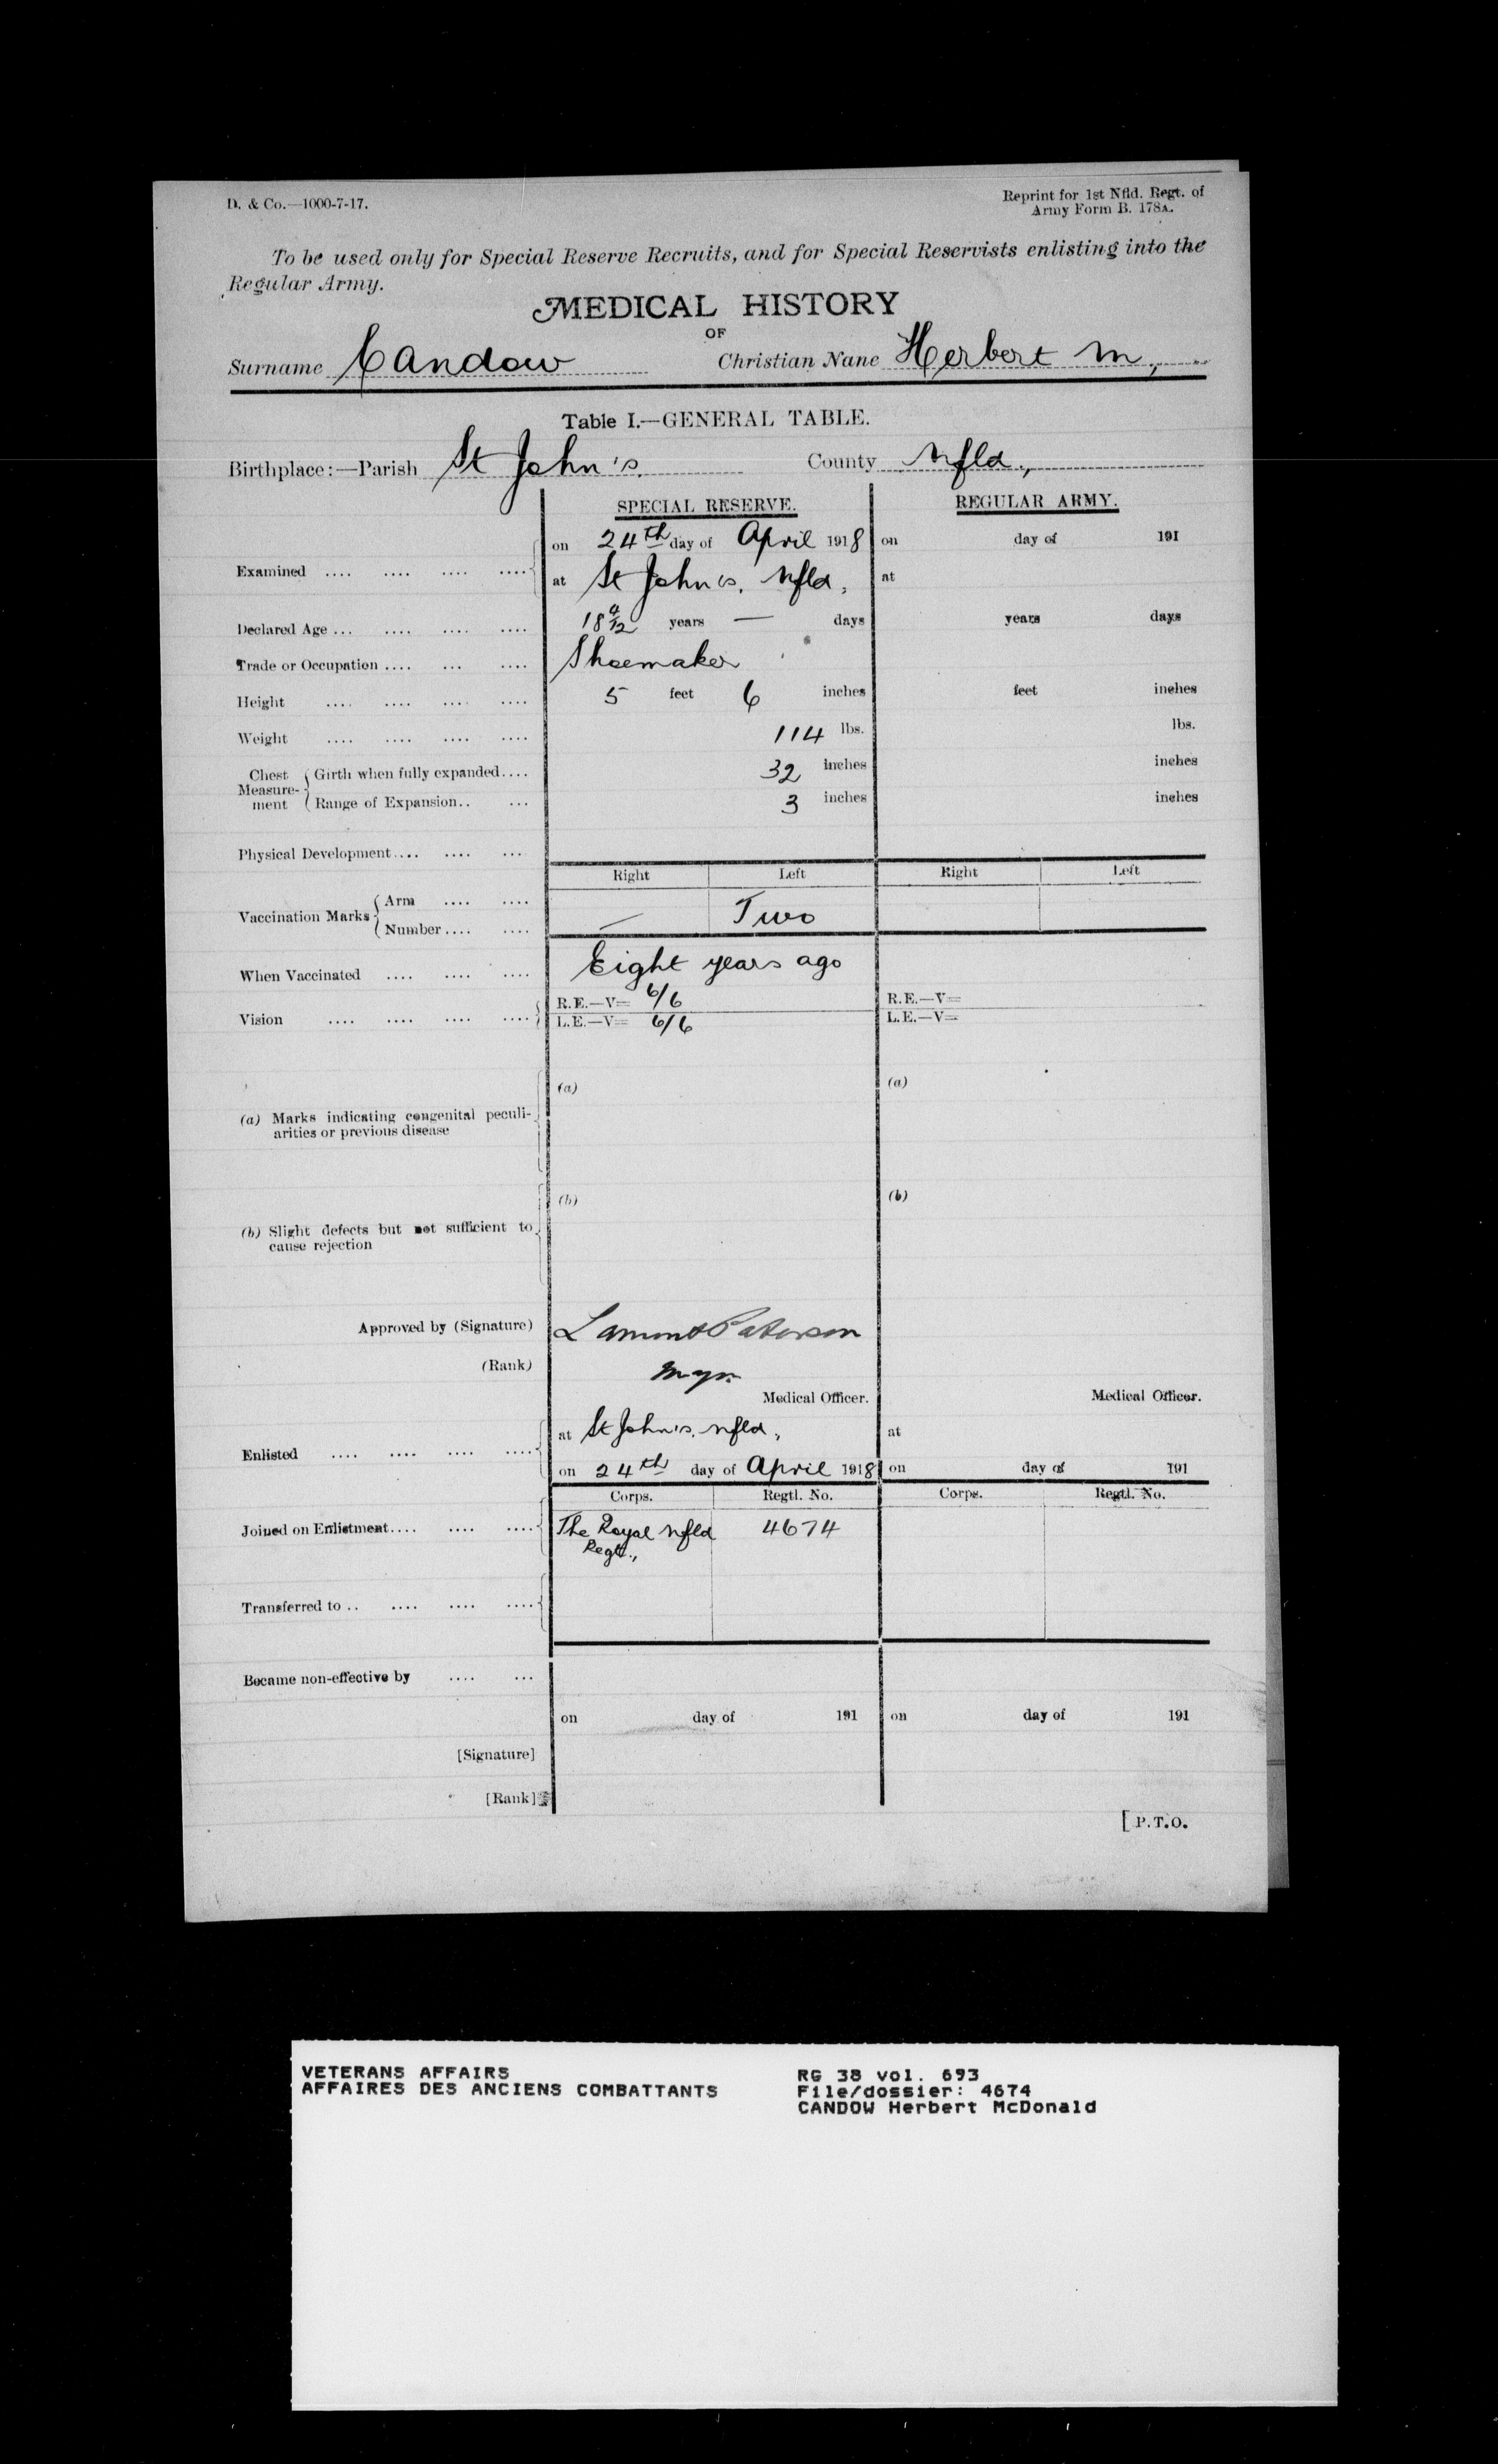 D. & Co.—1000-7-17.
Reprint for 1st Nfld. Regt. of
Army Form B. 178A.
To be used only for Special Reserve Recruits, and for Special Reservists enlisting into the
Regular Army.
MEDICAL HISTORY
OF
Surname Candow Christian Nane Herbert M,
Table I.—GENERAL TABLE.
Birthplace:—Parish St John's. County Nfld,
SPECIAL RESERVE. REGULAR ARMY.
on 24th day of April 1918 on day of 191
Examined .... .... .... ....
at St John's, Nfld, at
Declared Age ... .... .... .... 18 4/12 years — days years days
Trade or Occupation .... ... .... Shoemaker
Height .... .... .... .... 5 feet 6 inches feet inches
Weight .... .... .... .... 114 lbs. lbs.
Chest Measure-ment Girth when fully expanded.... 32 inches inches
Range of Expansion.. ... 3 inches inches
Physical Development.... .... ...
Right Left Right Left
Vaccination Marks Arm .... ....
Number.... .... — Two
When Vaccinated .... .... .... Eight years ago
Vision .... .... .... .... R.E.—V= 6/6 R.E.—V=
L.E.—V= 6/6 L.E.—V=
(a) (a)
(a) Marks indicating congenital peculi-
arities or previous disease
(b) (b)
(b) Slight defects but not sufficient to
cause rejection
Approved by (Signature) Lamont Paterson
(Rank) Major
Medical Officer. Medical Officer.
at St John's, Nfld, at
Enlisted .... .... .... ....
on 24th day of April 1918 on day of 191
Corps. Regtl. No. Corps. Regtl. No.
Joined on Enlistment.... .... .... The Royal Nfld 4674
Regt.,
Transferred to .. .... .... ....
Became non-effective by .... ...
on day of 191 on day of 191
[Signature]
[Rank]
[ P.T.O.
VETERANS AFFAIRS RG 38 vol. 693
AFFAIRES DES ANCIENS COMBATTANTS File/dossier: 4674
CANDOW Herbert McDonald